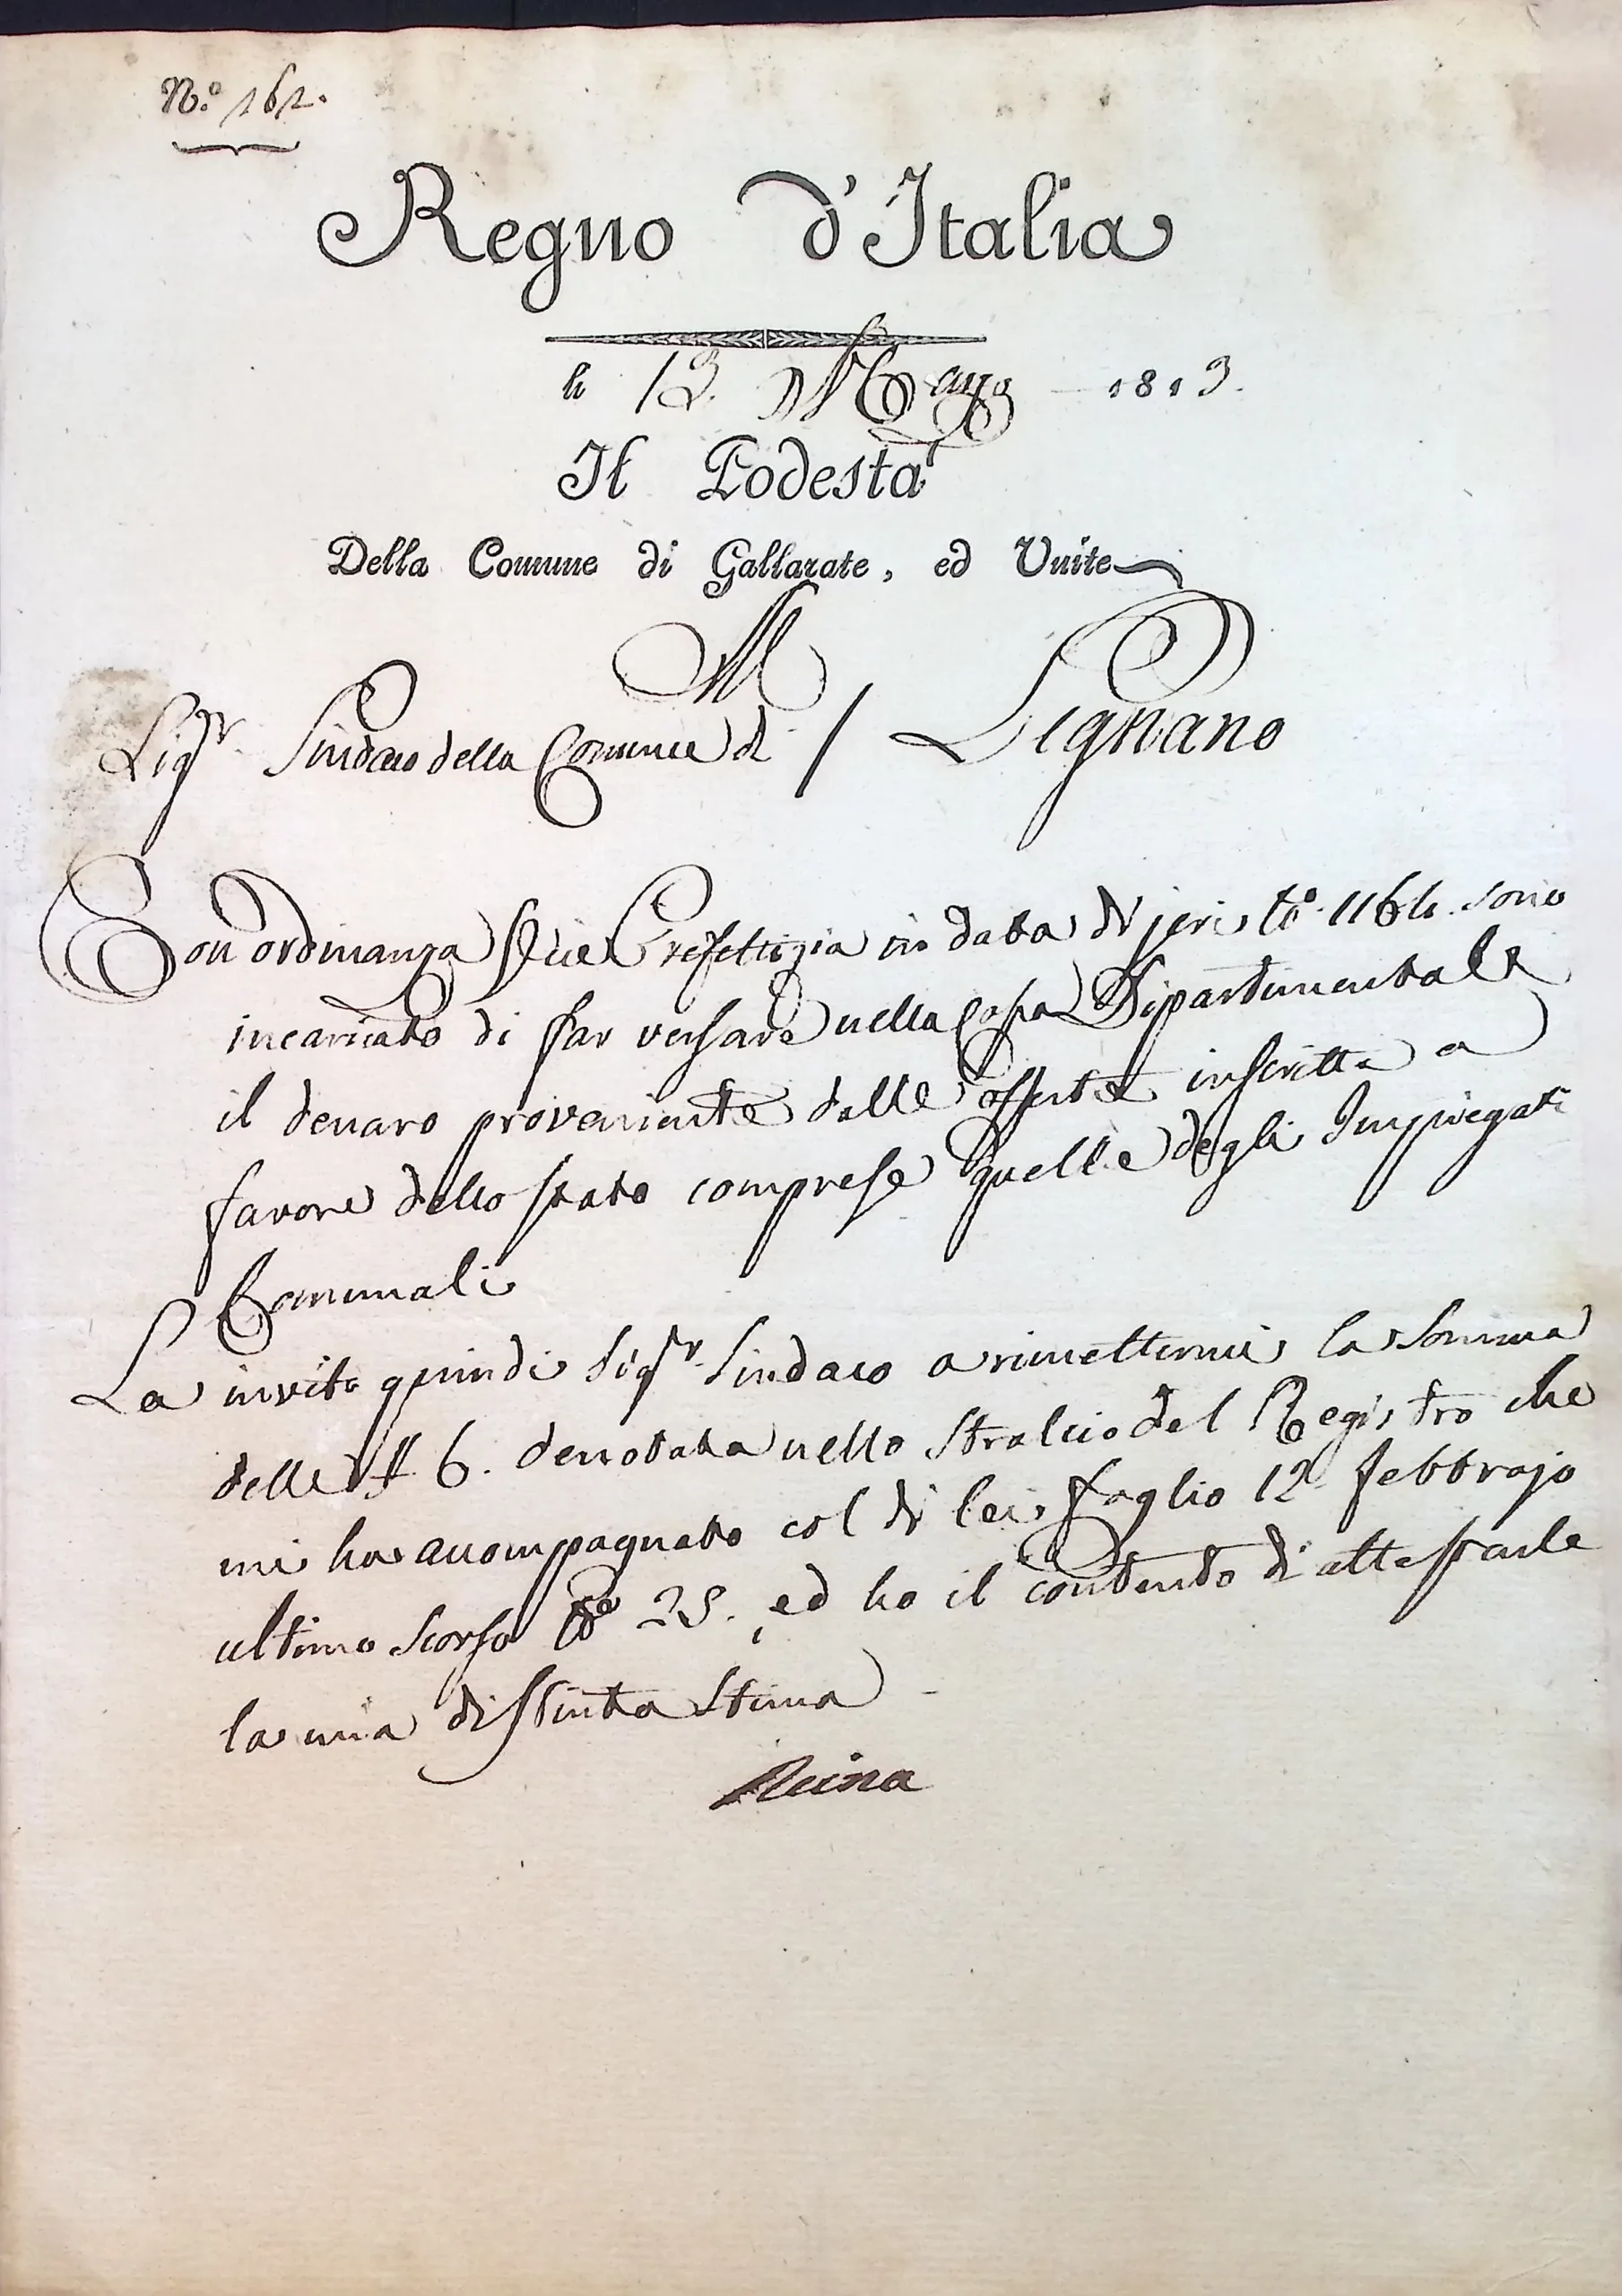 N.° 161.
Regno d'Italia
li 13. Marzo 1813.
Il Podestà
Della Comune di Gallarate, ed Unite
Al
Sig.r Sindaco della Comune di / Legnano
Con ordinanza Prefettizia in data di jeri N.° 1164. sono
incaricato di far versare nella Cassa Dipartimentale
il denaro proveniente dalle offerte inscritte a
favore dello stato comprese quelle degli Impiegati
Comunali
La invito quindi Sig.r Sindaco a rimettermi la somma
delle # 6. denotata nello Stralcio del Registro che
mi ha accompagnato col di lei foglio 12 febbrajo
ultimo scorso N.° 25. ed ho il contento di attestarle
la mia distinta stima
Reina